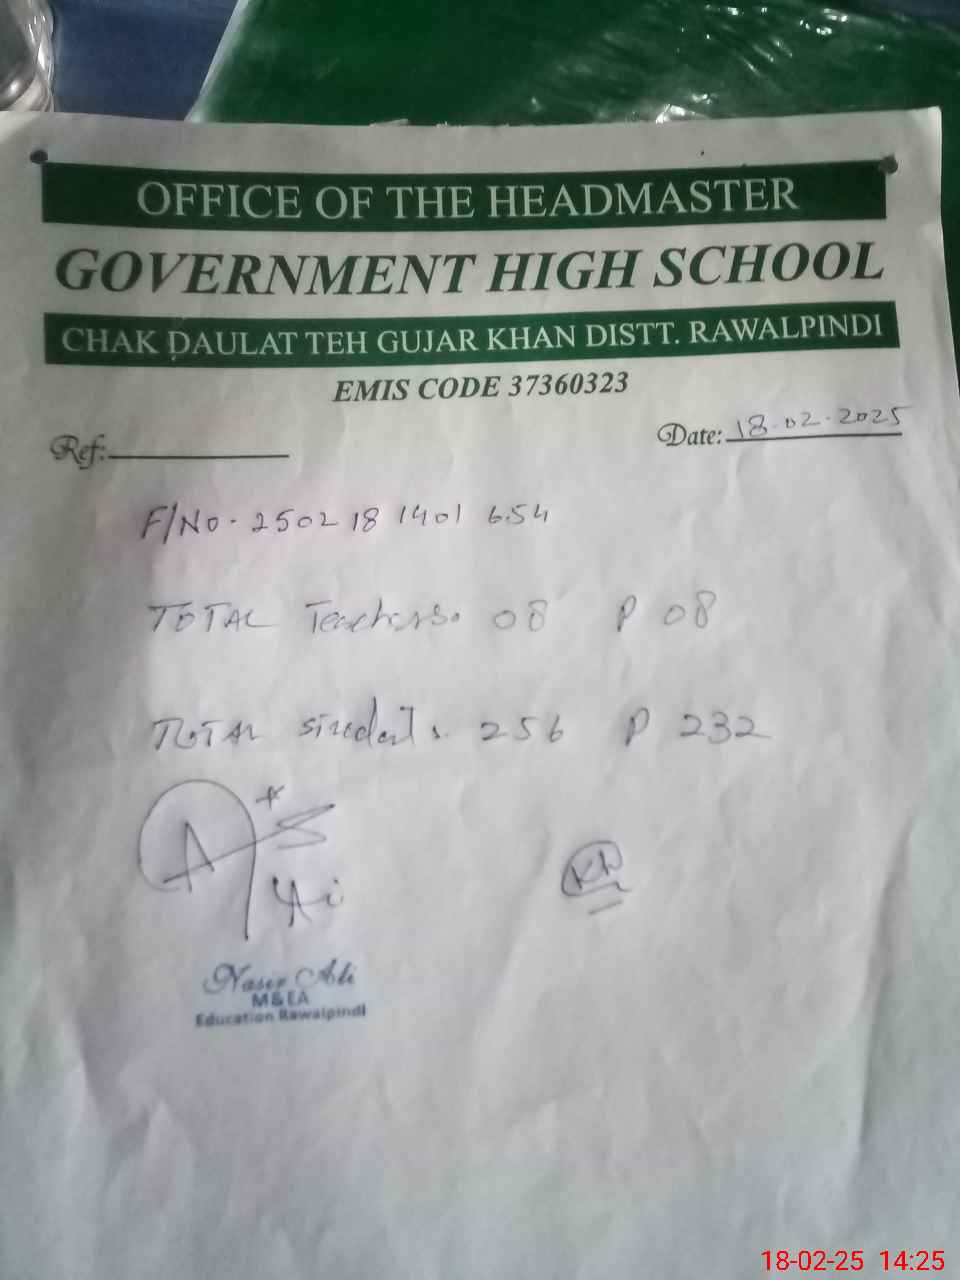 OFFICE OF THE HEADMASTER
GOVERNMENT HIGH SCHOOL
CHAK DAULAT TEH GUJAR KHAN DISTT. RAWALPINDI
EMIS CODE 37360323
Ref:
Date: 18-02-2025
F/No- 2502 18 1401 654
TOTAL Teachers. 08 P 08
TOTAL student. 256 P 232
Nasir Ali
M&EA
Education Rawalpindi
18-02-25 14:25